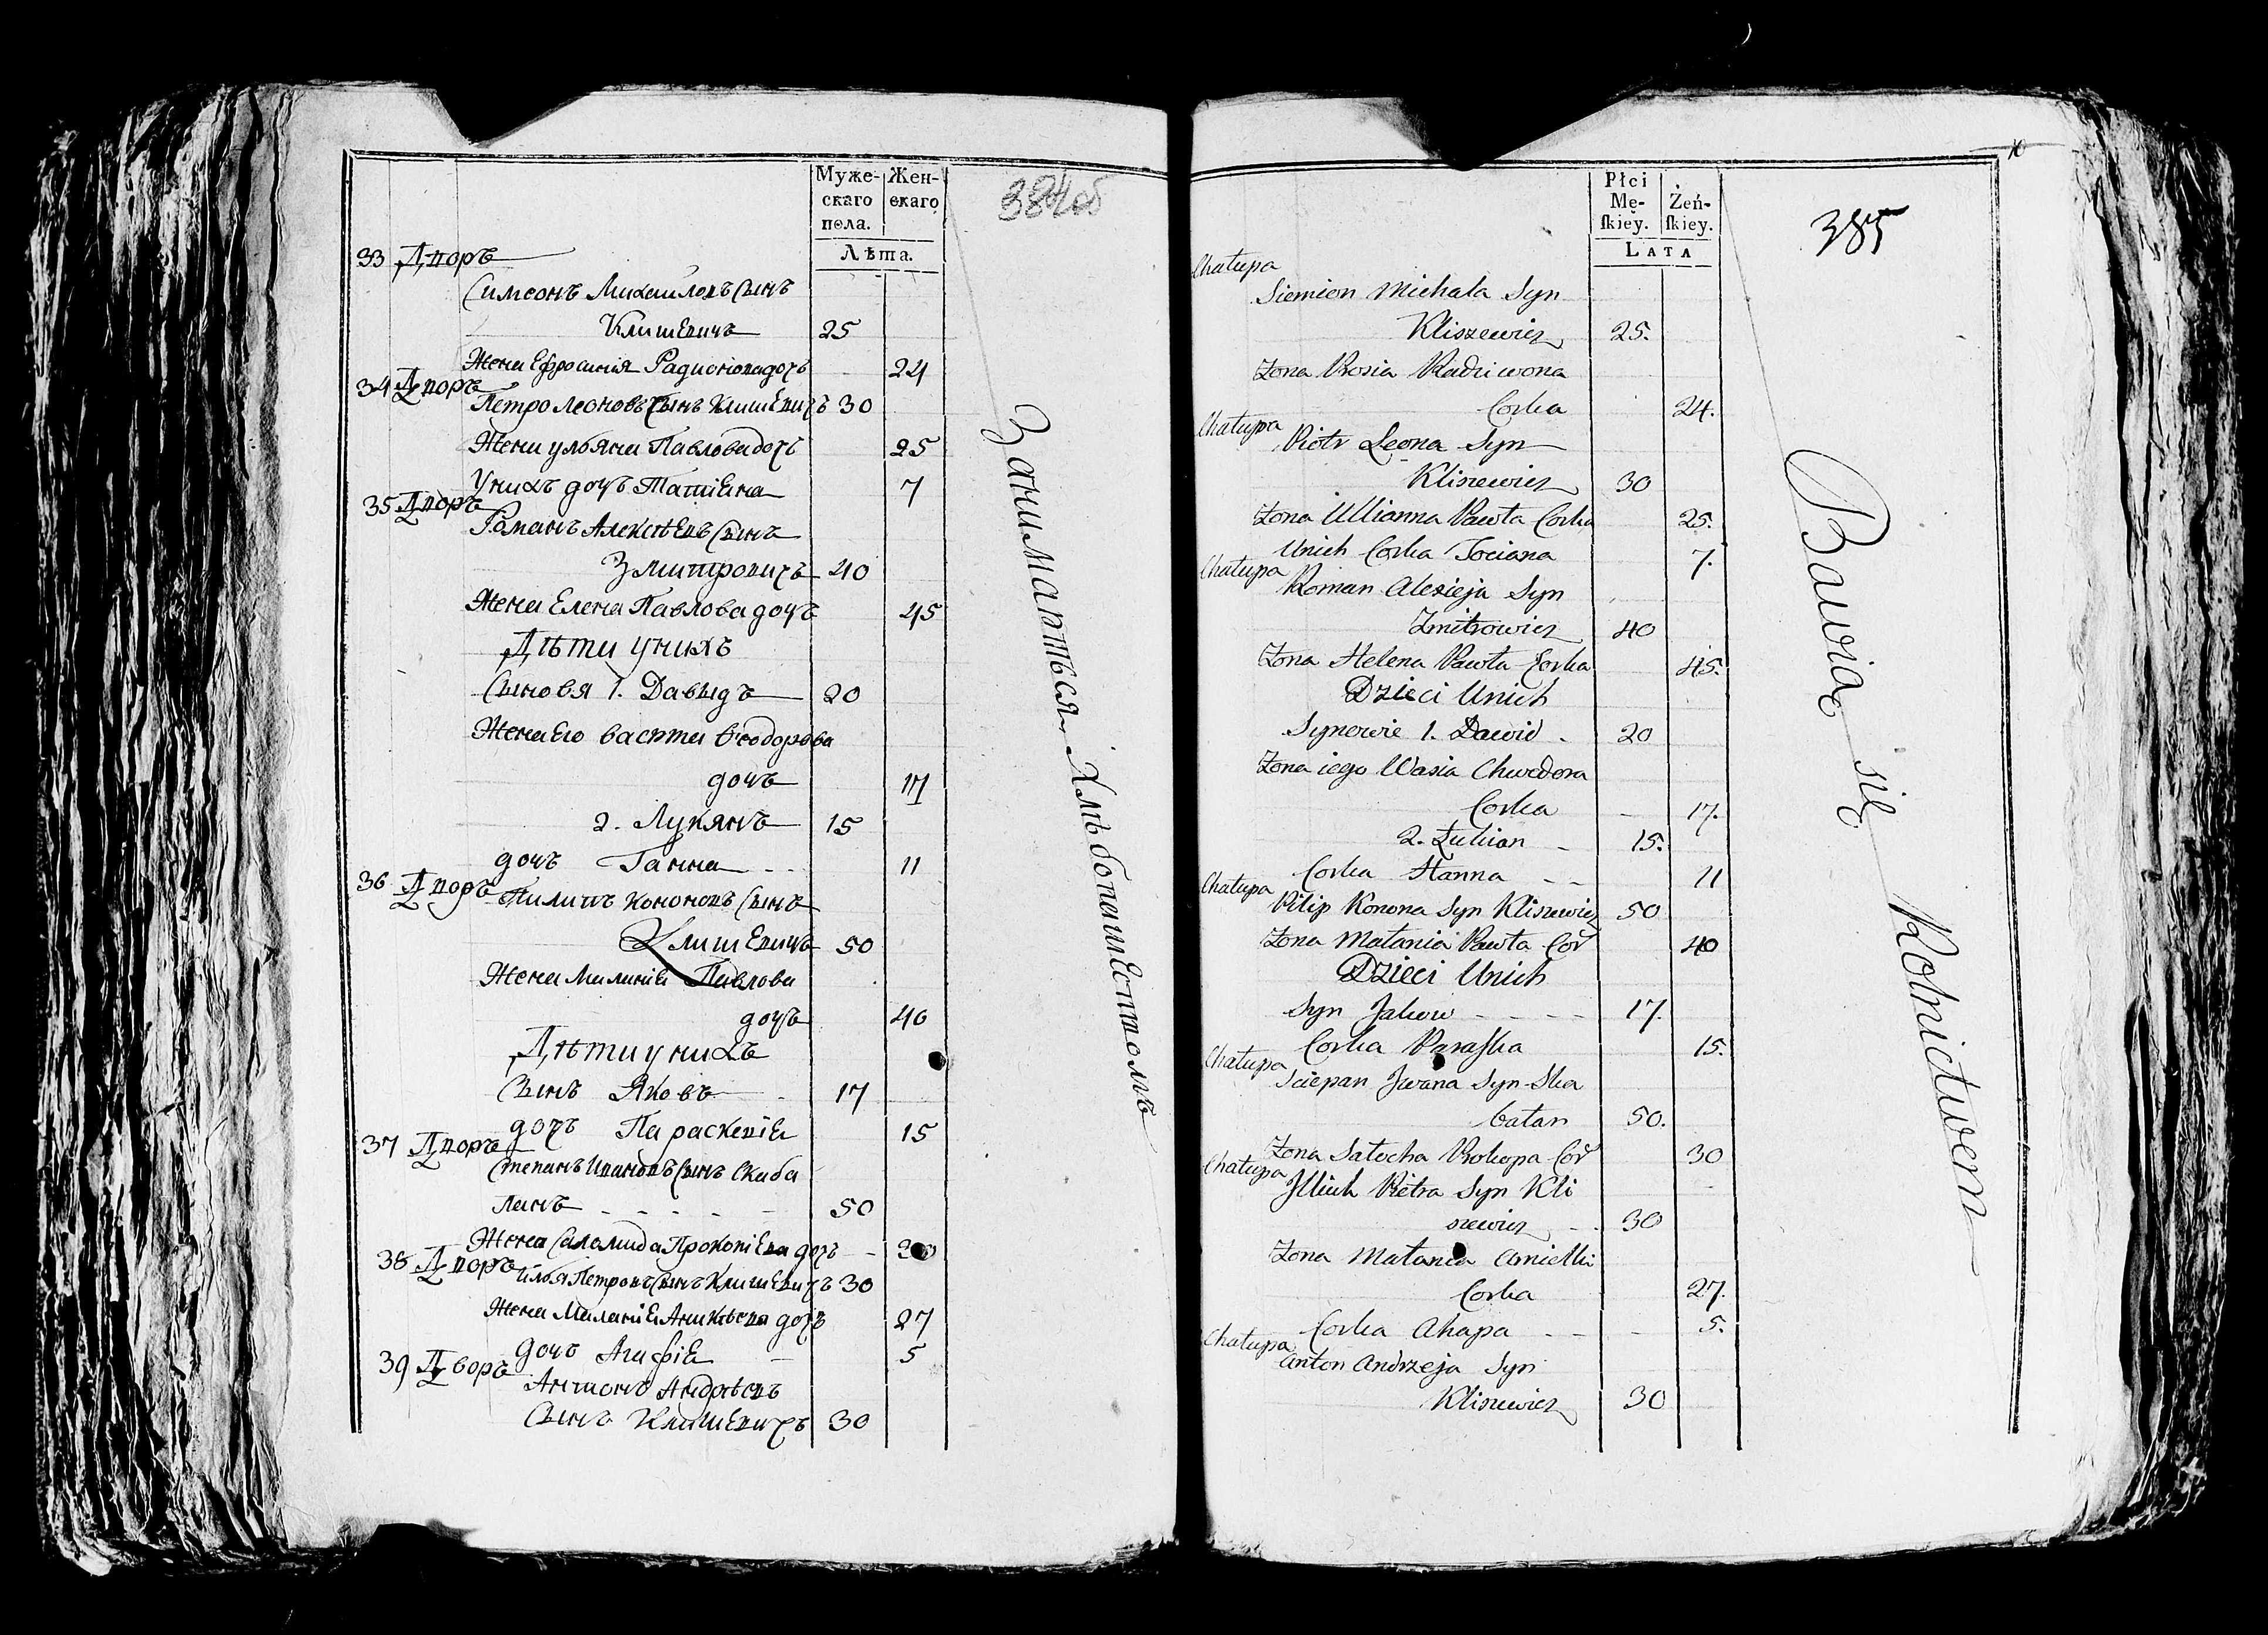 Муже-
скаго
пола.
Жен-
скаго
Лѣта.
384об
33 Дворъ
Симеонъ Михаиловъ Сынъ
Клишевичъ 25
Жена Ефросинія Радионова дочъ 24
34 Дворъ
Петро Леоновъ Сынъ Клишевичъ 30
Жена ульяна Павлова дочъ 25
Унихъ дочъ Татіена 7
35 Дворъ
Романъ Алексѣевъ Сынъ
Змитровичъ 40
Жена Елена Павлова дочъ 45
Дѣти унихъ
Сыновя 1. Давыдъ 20
Жена Его васта Ѳеодорова
дочъ 17
2. Лукянъ 15
дочъ Ганна 11
36 Дворъ
Пилипъ Кононовъ Сынъ
Клишевичъ 50
Жена Миланіе Павлова
дочъ 40
Дѣти унихъ
Сынъ Яковъ 17
дочъ Параскевіе 15
37 Дворъ
Степанъ Ивановъ Сынъ Скаба
танъ 50
Жена Саломида Прокопіева дочъ
38 Дворъ
Илья Петровъ Сынъ Клишевичъ 30
Жена Миланіе Аникѣева дочъ 27
дочъ Агафіе 5
39 Дворъ
Антонъ Андрѣевъ
Сынъ Клишевичъ 30
Занимаются Хлѣбопашествомъ
10
Płci
Mę-
ſkiey.
Żeń-
ſkiey.
LATA
385
Chałupa
Siemion Michała Syn
Kliszewicz 25.
Żona Prosia Radziwona
Corka 24.
Chałupa
Piotr Leona Syn
Kliszewicz 30
Żona Ullianna Pawła Corka 25.
Unich Corka Tociana 7.
Chałupa
Roman Alexieja Syn
Zmitrowicz 40
Żona Helena Pawła Corka 45.
Dzieci Unich
Synowie 1. Dawid 20
Żona iego Wasia Chwedora
Corka 17.
2. Łukian 15.
Corka Hanna 11
Chałupa
Pilip Konona Syn Kliszewicz 50
Żona Małania Pawła Cor 40
Dzieci Unich
Syn Jakow 17.
Corka Praſka 15.
Chałupa
Sciepan Jwana Syn Ska
batan 50.
Żona Sałocha Prokopa Cor 30
Chałupa
Jlliuk Pietra Syn Kli
szewicz 30
Żona Małania Amielki
Corka 27.
Corka Ahapa 5.
Chałupa
Anton Andrzeja Syn
Kliszewicz 30
Bawią się Rolnictwem